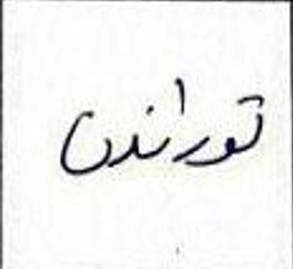 توراندن